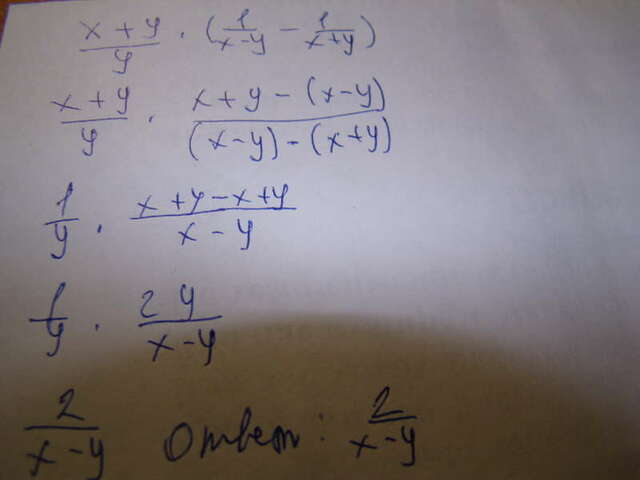 (x + y)/y · (1/(x-y) - 1/(x+y))
(x + y)/y · (x + y - (x-y))/((x-y) - (x+y))
1/y · (x + y - x + y)/(x - y)
1/y · 2y/(x-y)
2/(x-y) Ответ: 2/(x-y)